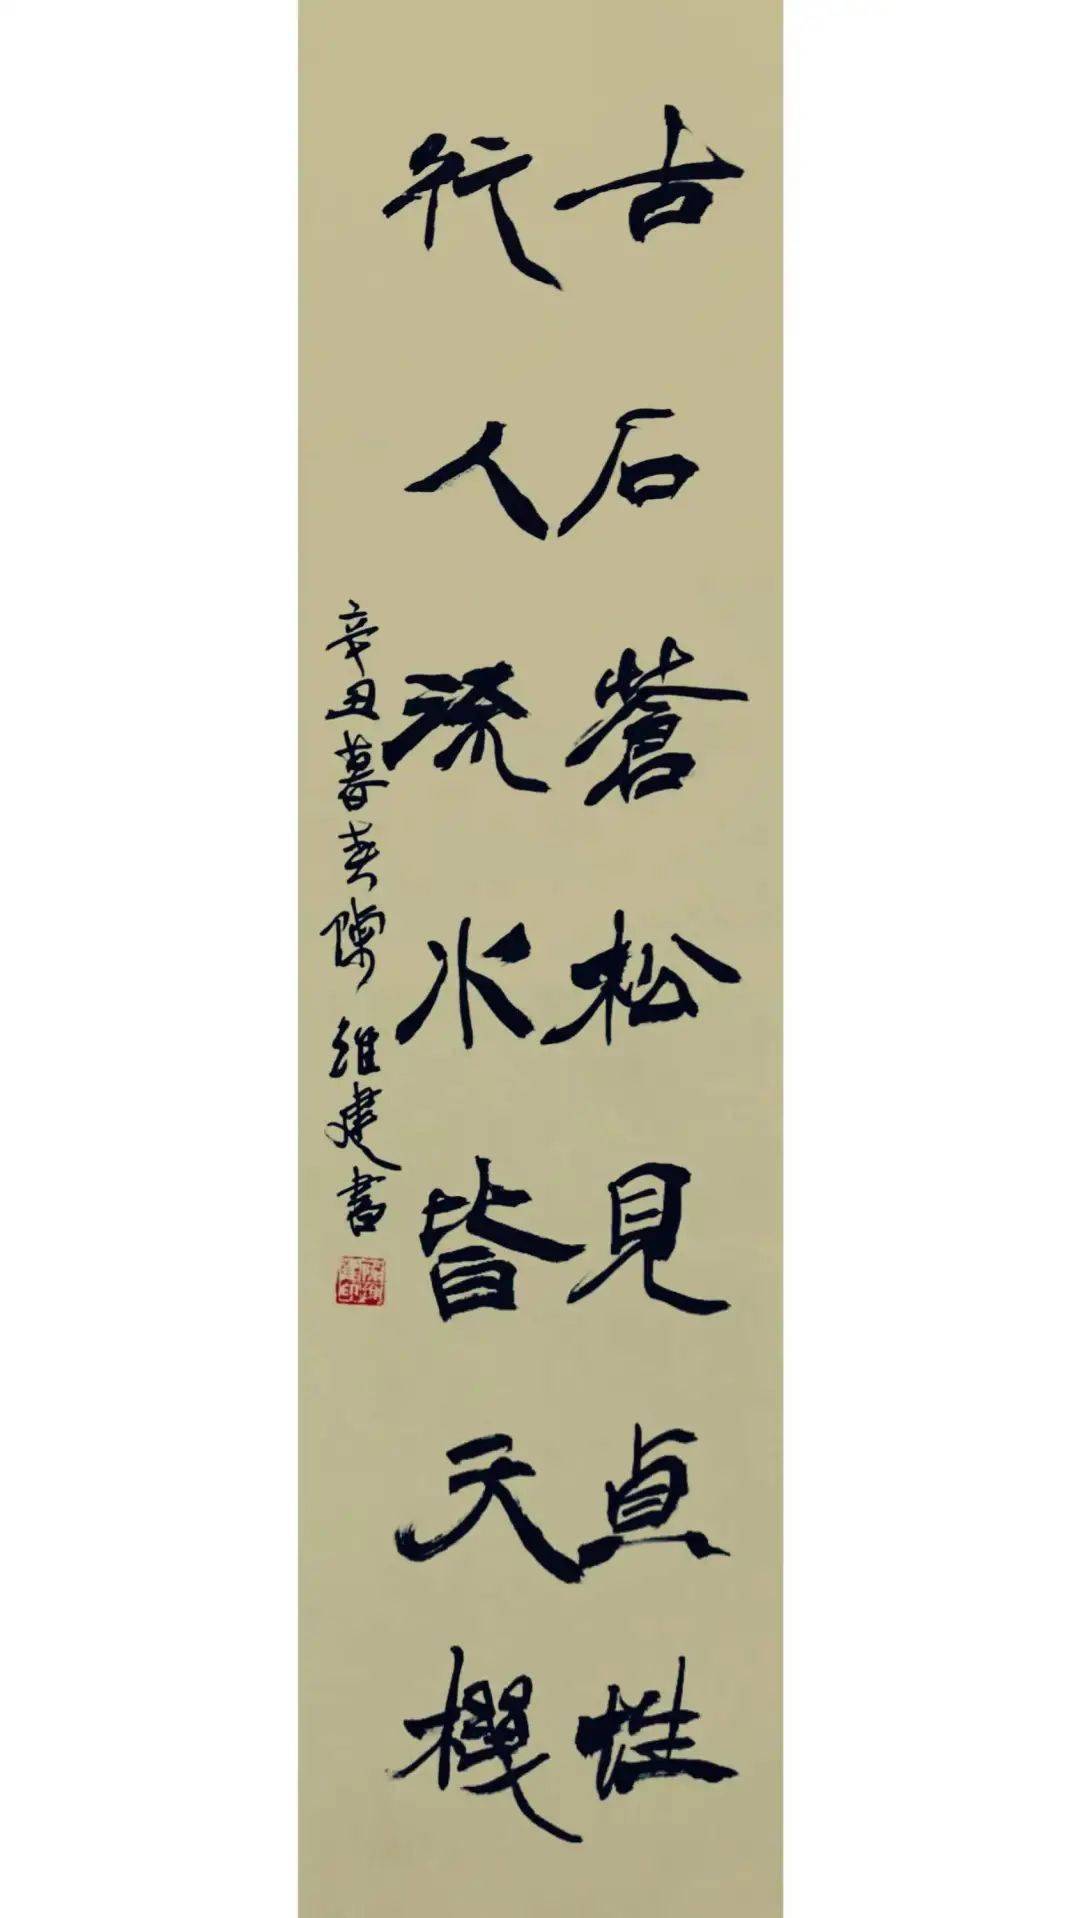 古石蒼松見貞性
行人流水皆天機
辛丑暮春陳維建書